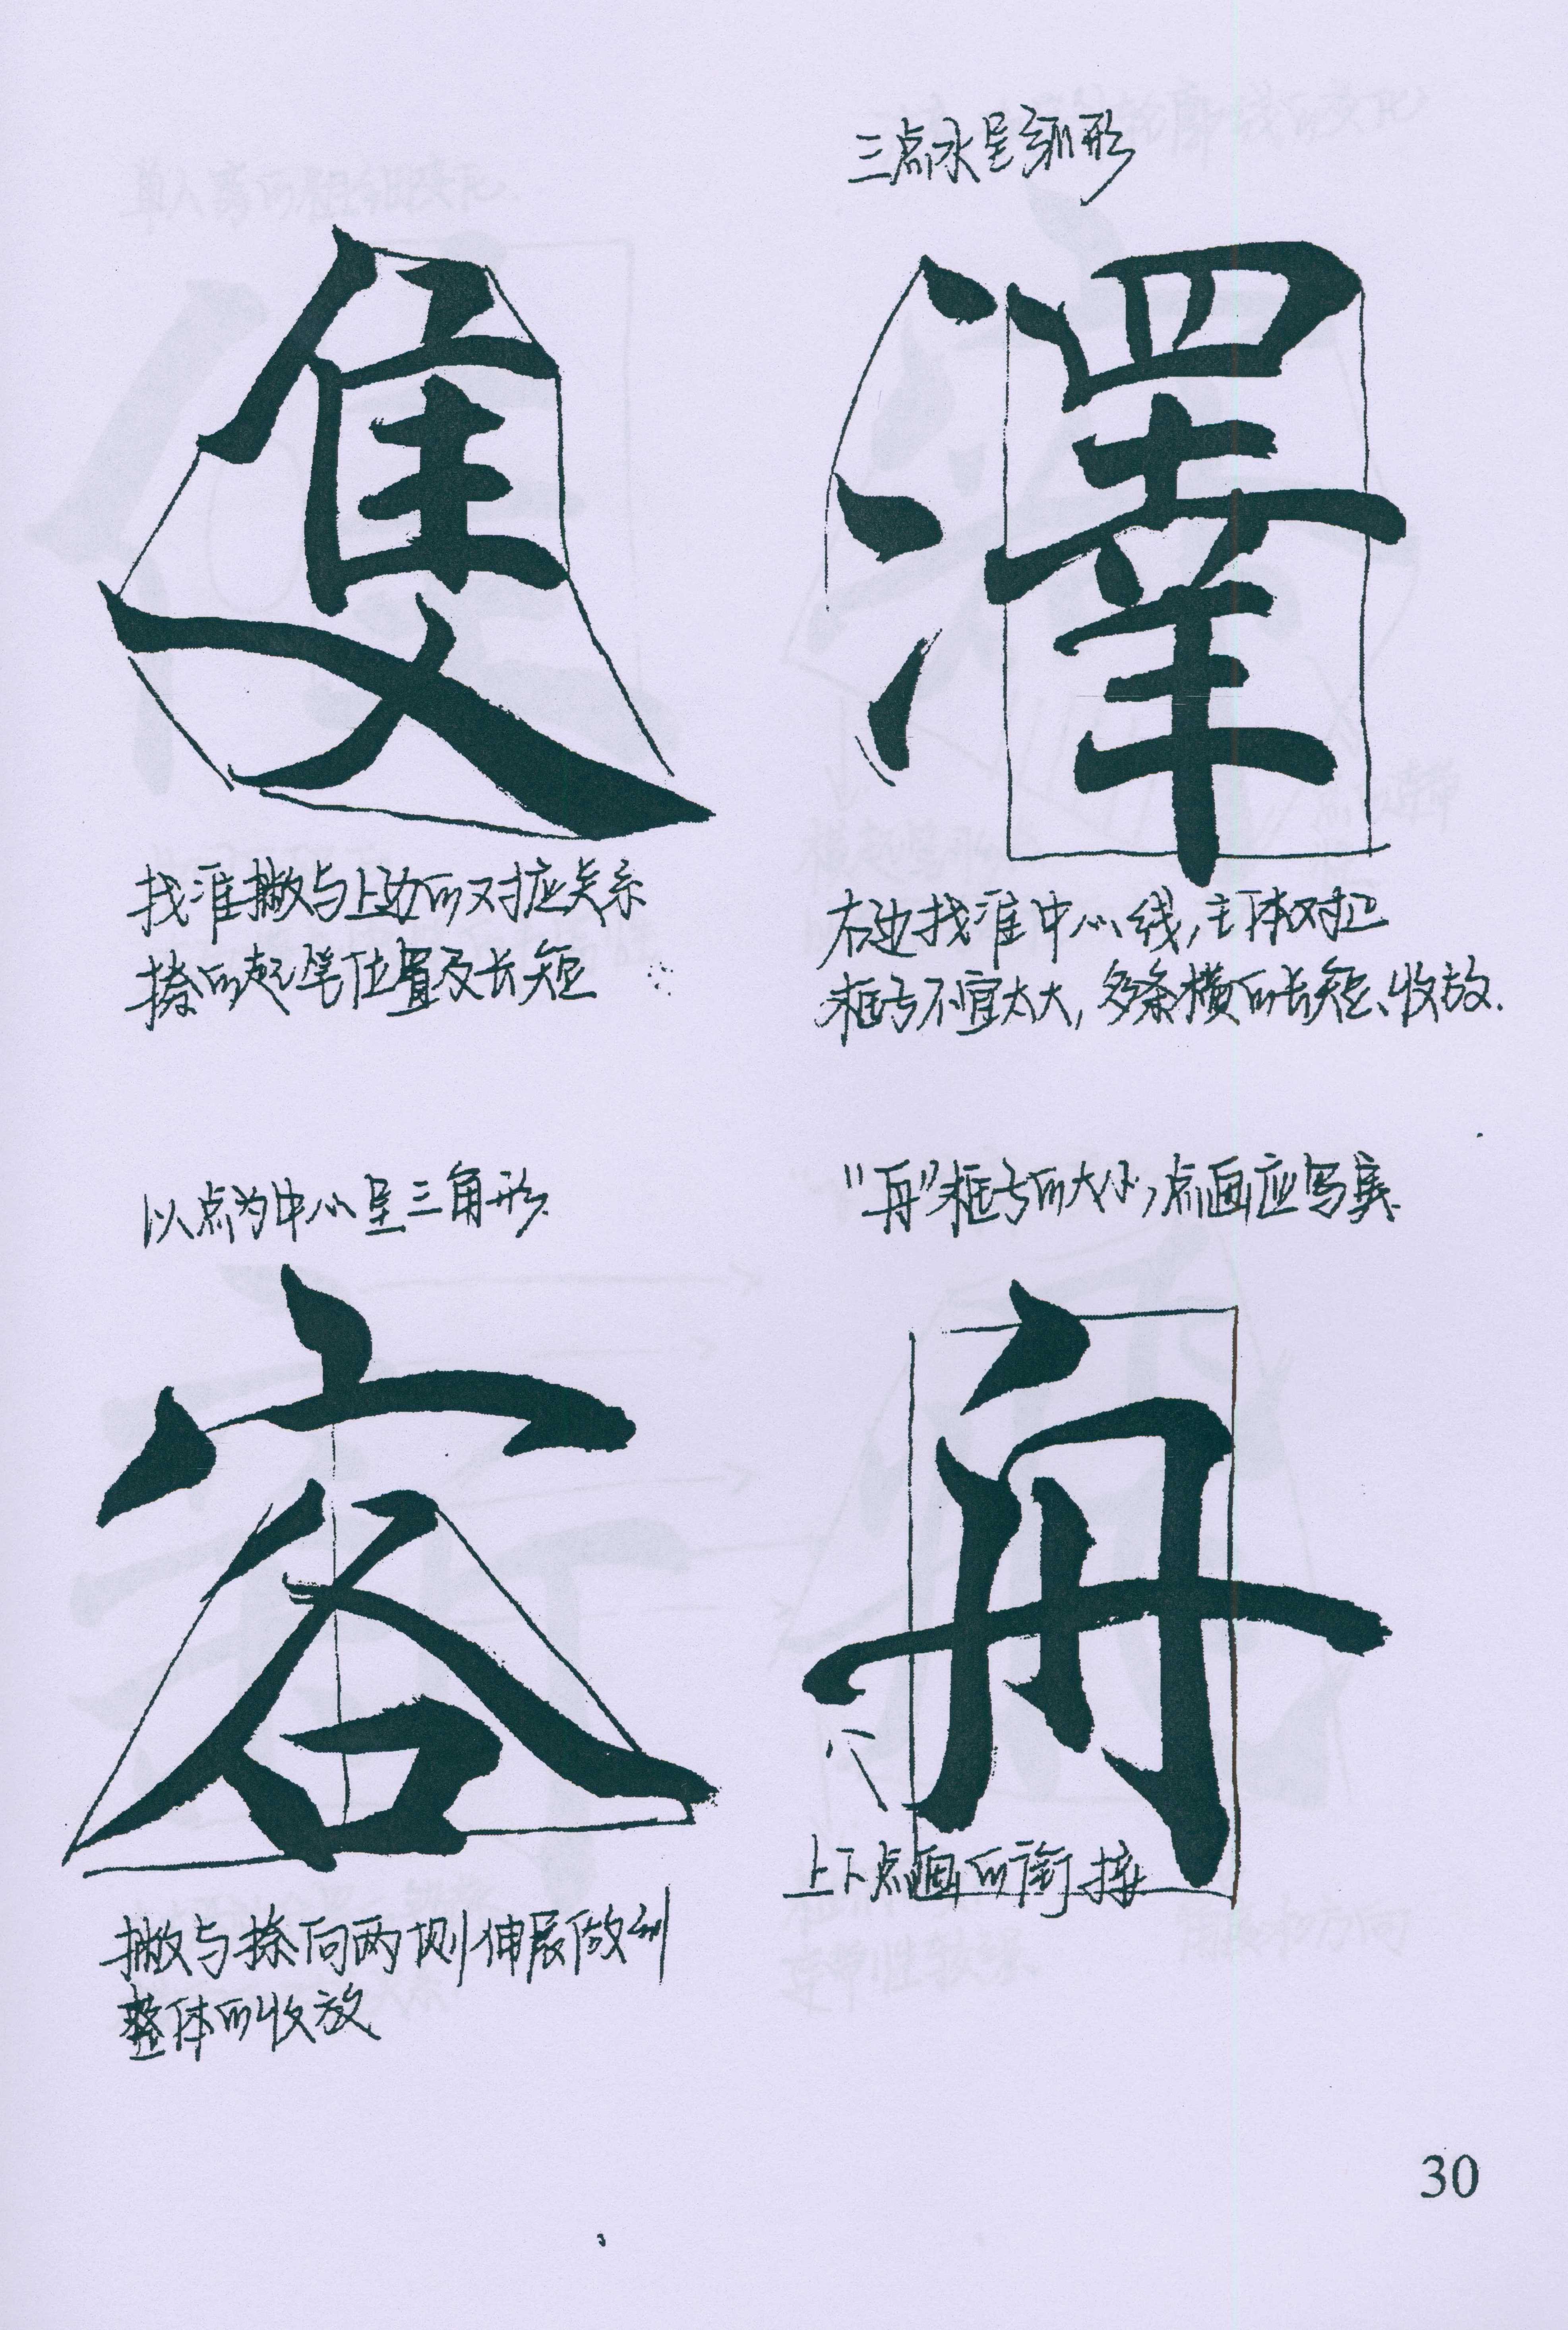 三点水呈弧形
隻
澤
找准撇与上边的对应关系
捺的起笔位置及长短
右边找准中心线,主体对正
框与不宜太大,多条横的长短、收放.
以点为中心呈三角形.
"再"框与的大小,点画应写实.
容
再
上下点画的衔接
撇与捺向两侧伸展做到
整体的收放
30